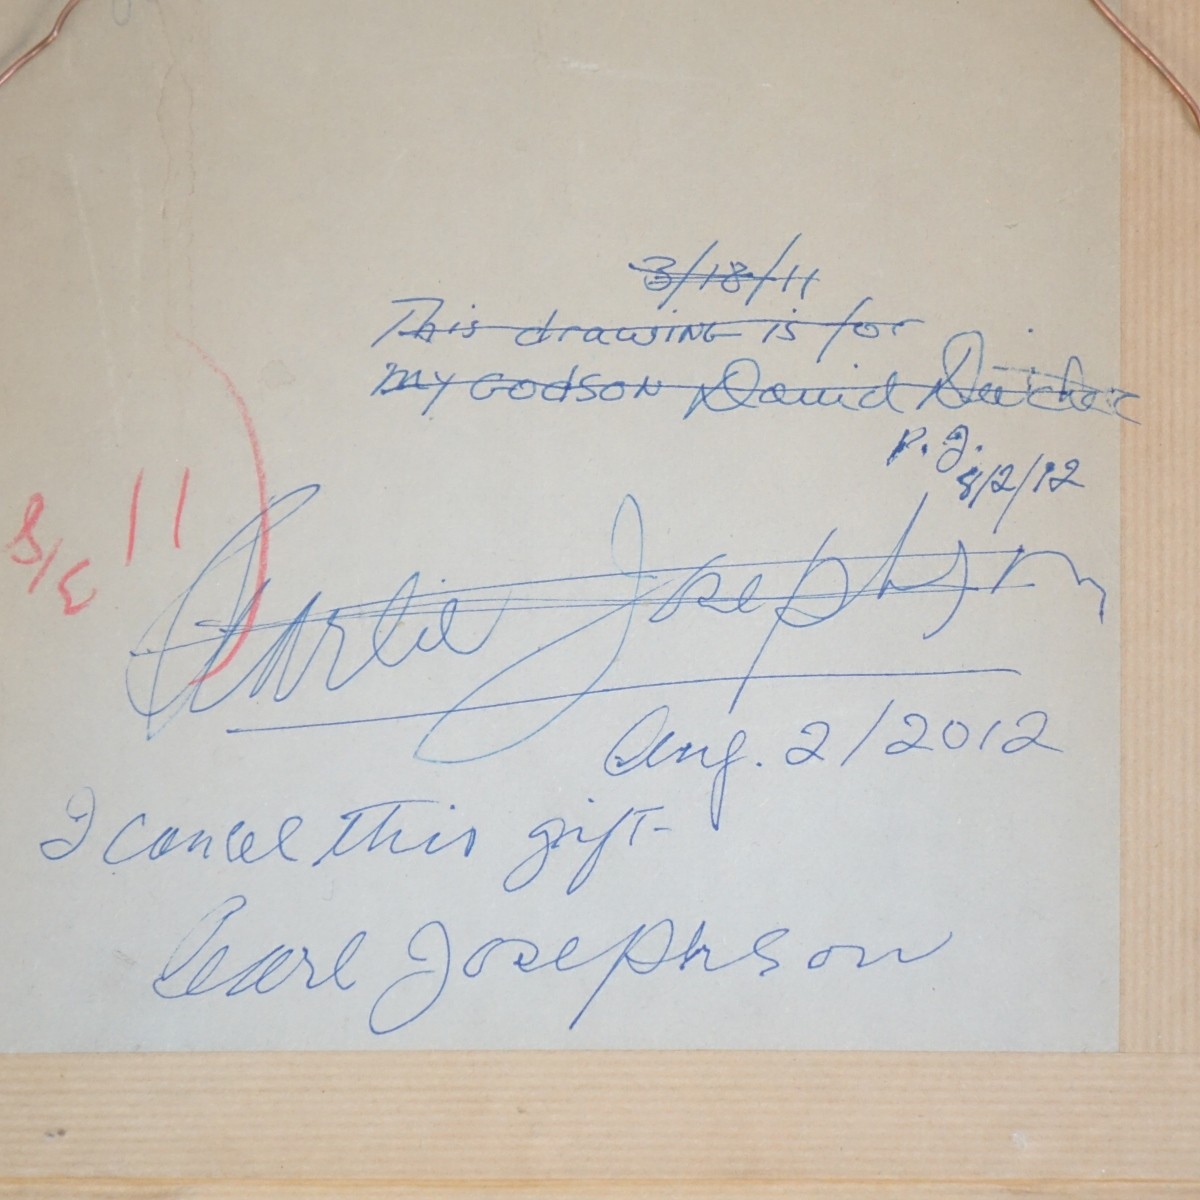 3/18/11
This drawing is for
my GODSON David
P.J.
8/2/12
11
Pearlie Josephson
Aug. 2/2012
I cancel this gift
Pearl Josephson